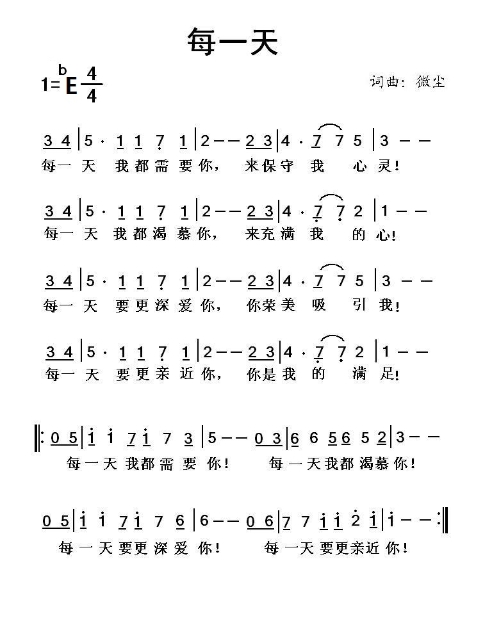 每一天
1=ᵇE 4/4
词曲：微尘
3 4|5· 1 1 7 1|2 - - 2 3|4· 7 7 5|3 - -
每一 天 我都需要你，来保守 我 心灵！
3 4|5· 1 1 7 1|2 - - 2 3|4· 7 7 2|1 - -
每一 天 我都渴慕你，来充满 我 的心！
3 4|5· 1 1 7 1|2 - - 2 3|4· 7 7 5|3 - -
每一 天 要更深爱你，你荣美 吸 引我！
3 4|5· 1 1 7 1|2 - - 2 3|4· 7 7 2|1 - -
每一 天 要更亲近你，你是我 的 满足！
‖: 0 5|1 1 7 1 7 3|5 - - 0 3|6 6 5 6 5 2|3 - -
每一天 我都需 要 你！ 每一天我都渴慕你！
0 5|1 1 7 1 7 6|6 - - 0 6|7 7 1 1 2 1|1 - - :‖
每 一 天要更深 爱 你！ 每一天 要更亲近你！